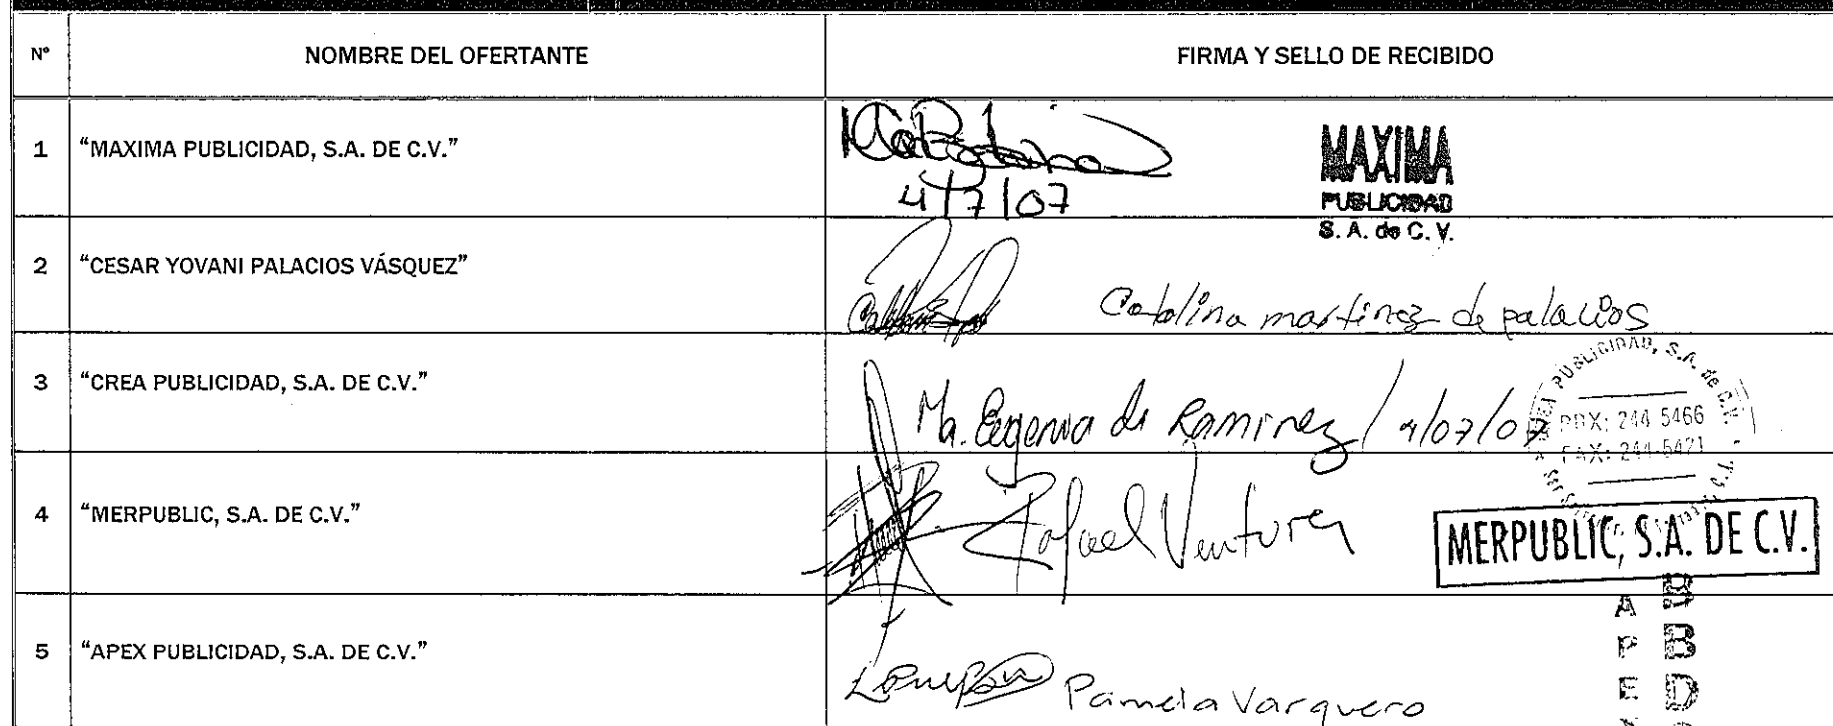 N° NOMBRE DEL OFERTANTE FIRMA Y SELLO DE RECIBIDO
1 “MAXIMA PUBLICIDAD, S.A. DE C.V.”
4/7/07
MAXIMA
PUBLICIDAD
S. A. de C. V.
2 “CESAR YOVANI PALACIOS VÁSQUEZ”
Catalina martinez de palacios
3 “CREA PUBLICIDAD, S.A. DE C.V.”
Ma. Eugenia de Ramirez / 4/07/07
PUBLICIDAD, S.A. de C.V.
PBX: 244 5466
FAX: 244-5421
4 “MERPUBLIC, S.A. DE C.V.”
Rafael Ventura
MERPUBLIC, S.A. DE C.V.
5 “APEX PUBLICIDAD, S.A. DE C.V.”
Pamela Varquero
APEX
BBD